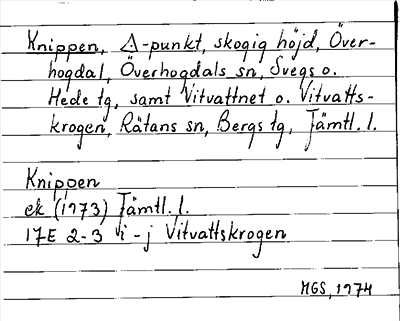 Knippen, △-punkt, skogig höjd, Över-
hogdal, Överhogdals sn, Svegs o.
Hede tg, samt Vitvattnet o. Vitvatts-
krogen, Rätans sn, Bergs tg, Jämtl. l.
Knippen
ek (1973) Jämtl. l.
17E 2-3 i-j Vitvattskrogen
MGS, 1974